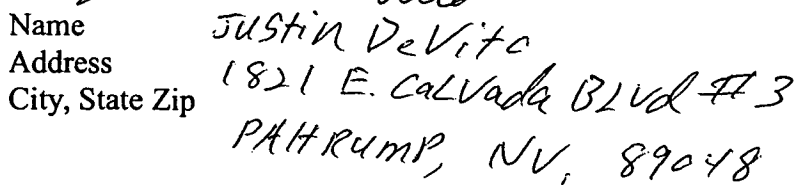 Name Justin DeVito
Address 1821 E. CaLVada BLVd #3
City, State Zip PAHRUMP, NV, 89048